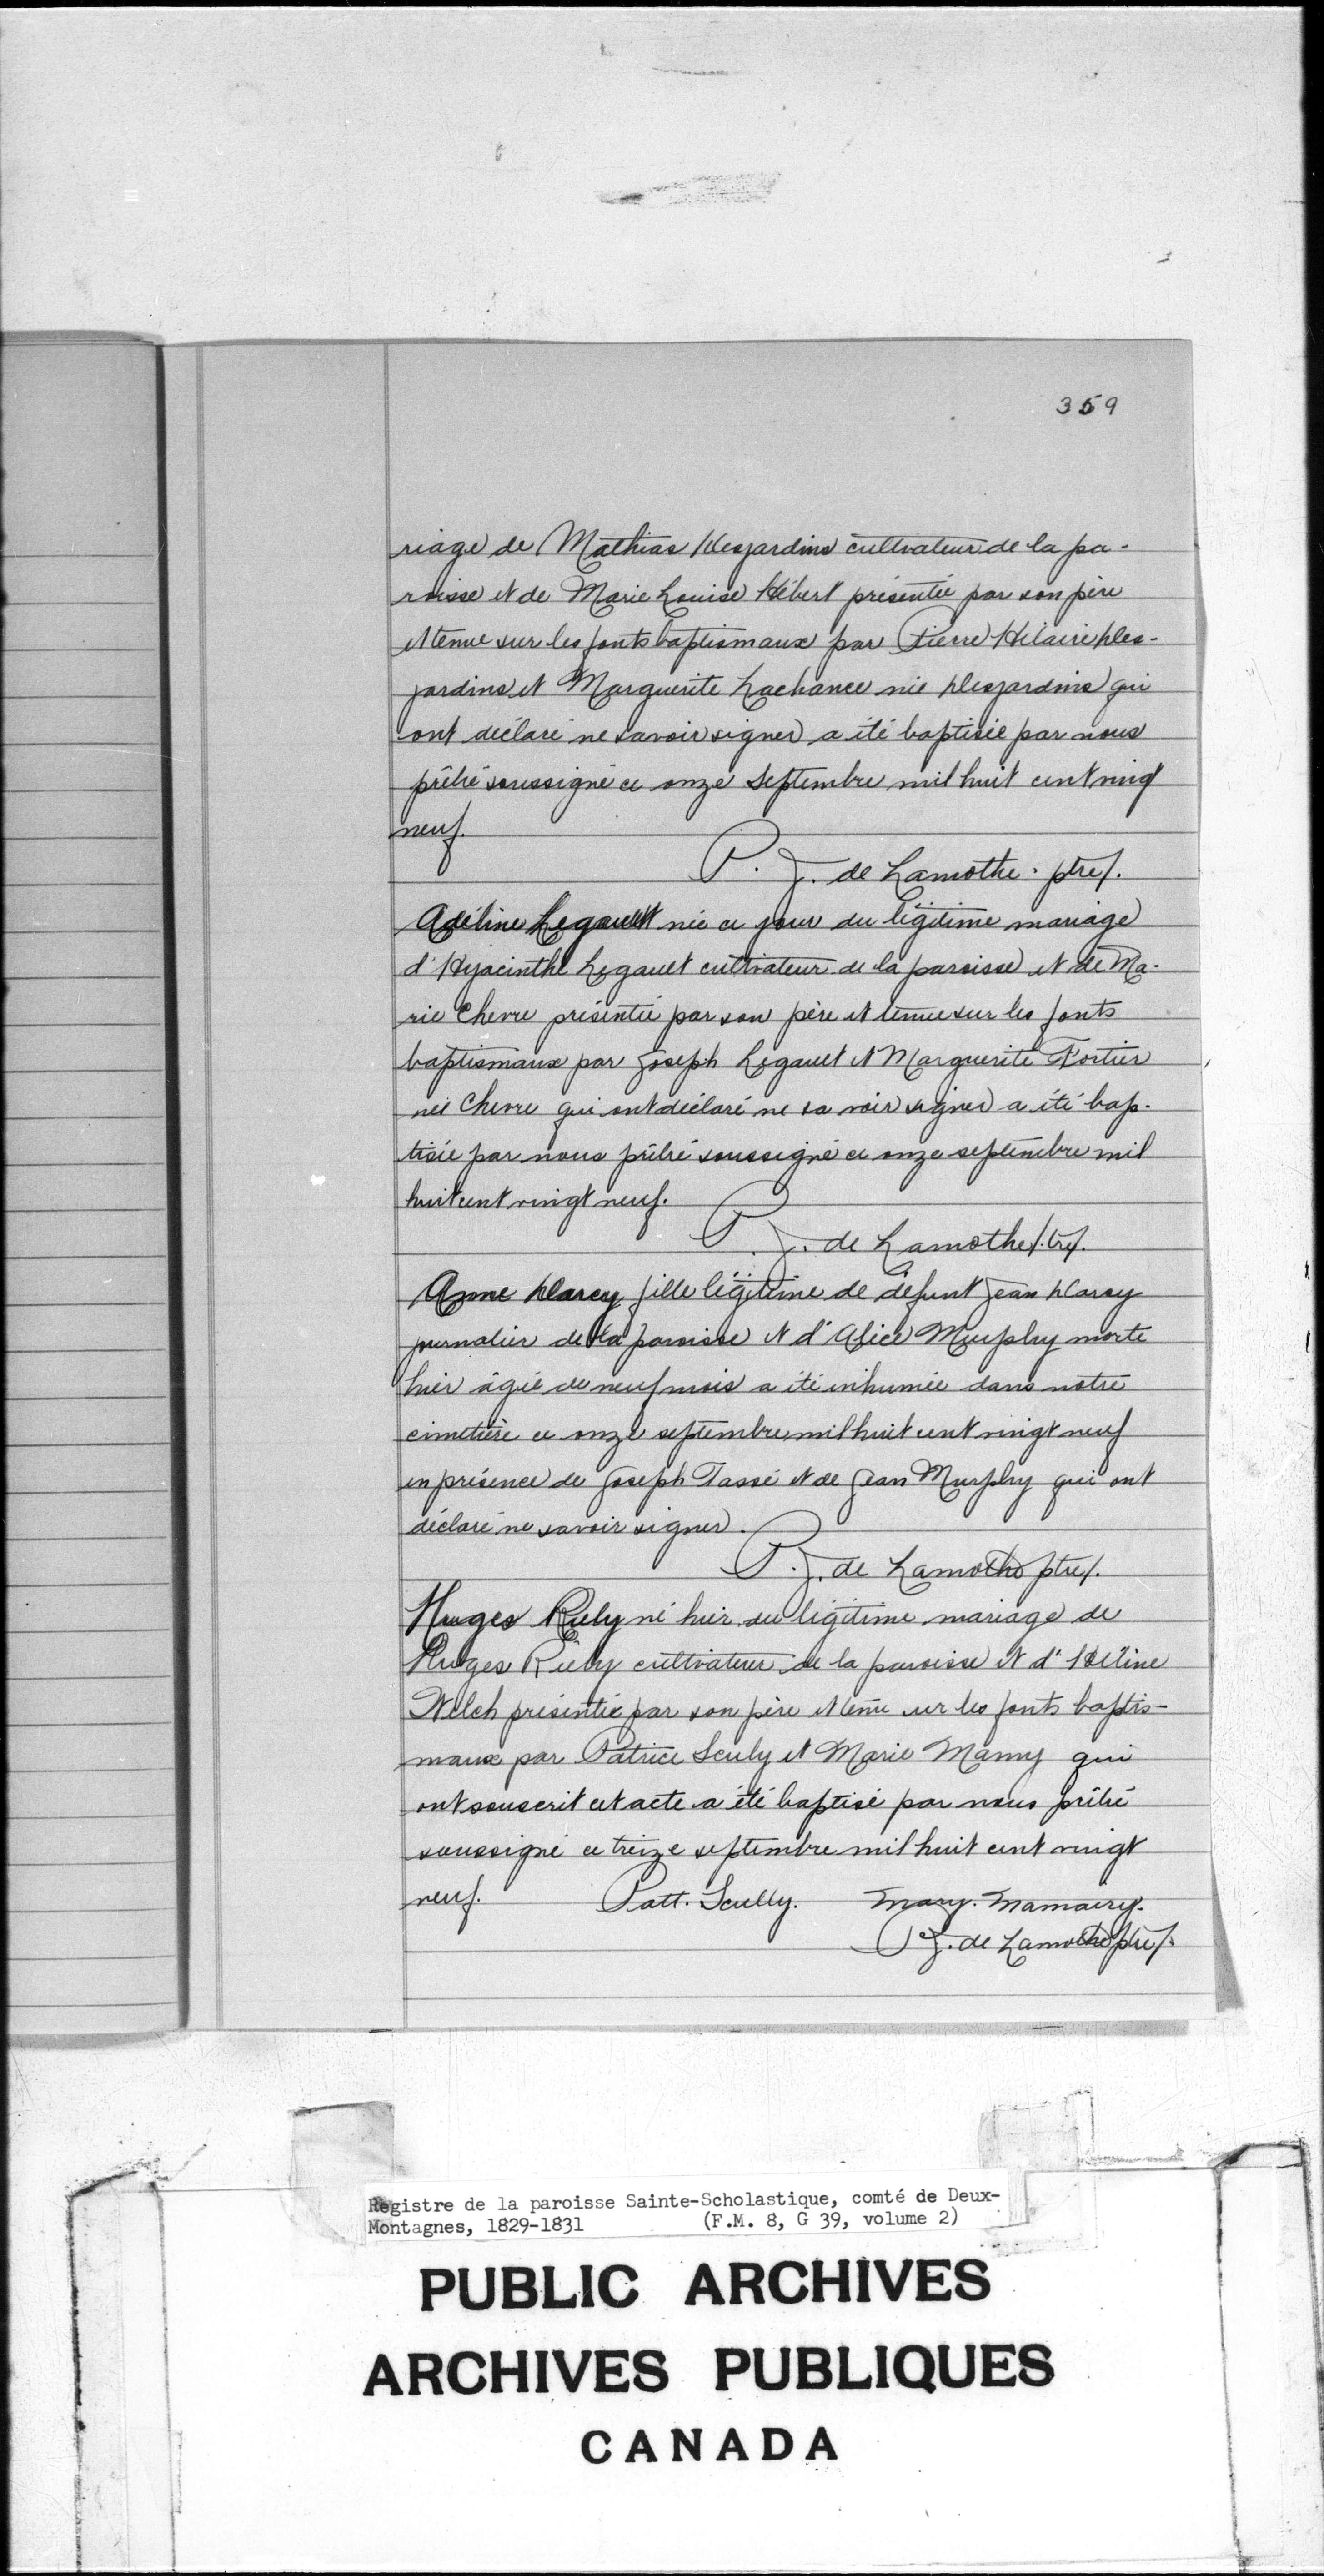 359
riage de Mathias Desjardins cultivateur de la pa-
roisse et de Marie Louise Hébert présentée par son père
et tenue sur les fonts baptismaux par Pierre Hilaire Des-
jardins et Marguerite Lachance née Desjardins qui
ont déclaré ne savoir signer a été baptisée par nous
prêtre soussigné ce onze septembre mil huit cent vingt
neuf.
P. J. de Lamothe. ptre/.
Adéline Legault née ce jour du légitime mariage
d'Hyacinthe Legault cultivateur de la paroisse et de Ma-
rie Chevre présentée par son père et tenue sur les fonts
baptismaux par Joseph Legault et Marguerite Fortier
née Chevre qui ont déclaré ne savoir signer a été bap-
tisée par nous prêtre soussigné ce onze septembre mil
huit cent vingt neuf.
P. J. de Lamothe/.tre/.
Anne Darcy fille légitime de défunt Jean Darcy
journalier de la paroisse et d'Alice Murphy morte
hier âgée de neuf mois a été inhumée dans notre
cimetière ce onze septembre mil huit cent vingt neuf
en présence de Joseph Tassé et de Jean Murphy qui ont
déclaré ne savoir signer.
P. J. de Lamothe ptre/.
Huges Riely né hier du légitime mariage de
Huges Riely cultivateur de la paroisse et d'Hélène
Welch présentée par son père et tenu sur les fonts baptis-
maux par Patrice Sculy et Marie Mamy qui
ont souscrit cet acte a été baptisé par nous prêtre
soussigné ce treize septembre mil huit cent vingt
neuf. Patt. Scully. Mary. Mamairy.
P. J. de Lamothe ptre/.
Registre de la paroisse Sainte-Scholastique, comté de Deux-
Montagnes, 1829-1831 (F.M. 8, G 39, volume 2)
PUBLIC ARCHIVES
ARCHIVES PUBLIQUES
CANADA